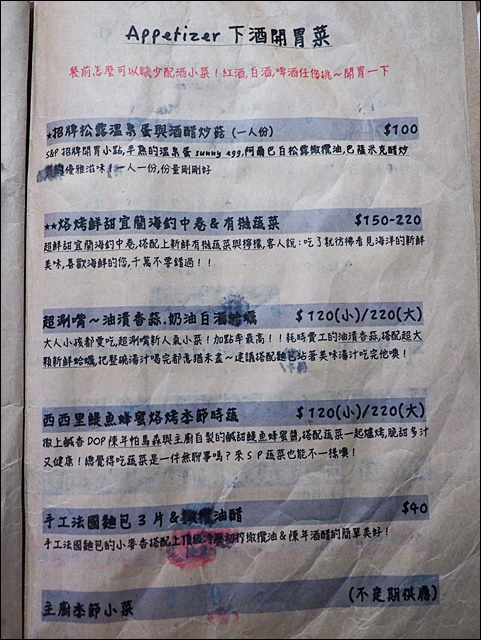 Appetizer 下酒開胃菜
餐前怎麼可以缺少配酒小菜！紅酒,白酒,啤酒任您挑～開胃一下
★招牌松露溫泉蛋與酒醋炒菇 (一人份) $100
S&P 招牌開胃小點,半熟的溫泉蛋 sunny egg,阿爾巴白松露橄欖油,巴薩米克醋炒
優雅滋味！一人一份,份量剛剛好
★★烙烤鮮甜宜蘭海釣中卷&有機蔬菜 $150-220
超鮮甜宜蘭海釣中卷,搭配上新鮮有機蔬菜與檸檬,客人說：吃了就彷彿看見海洋的新鮮
美味,喜歡海鮮的您,千萬不要錯過！！
超涮嘴～油漬香蒜.奶油白酒蛤蠣 $120(小)/220(大)
大人小孩都愛吃,超涮嘴新人氣小菜！加點率最高！！耗時費工的油漬香蒜,搭配超大
顆新鮮蛤蠣,把整碗湯汁喝完都意猶未盡～建議搭配麵包沾著美味湯汁吃完他噢！
西西里鯷魚蜂蜜烙烤季節時蔬 $120(小)/220(大)
撒上鹹香DOP陳年帕馬森與主廚自製的鹹甜鯷魚蜂蜜醬,搭配蔬菜一起爐烤,脆甜多汁
又健康！總覺得吃蔬菜是一件無聊事嗎？來SP蔬菜也能不一樣噢！
手工法國麵包 3 片&橄欖油醋 $40
手工法國麵包的小麥香搭配上頂級冷壓初榨橄欖油&陳年酒醋的簡單美好！
主廚季節小菜 (不定期供應)